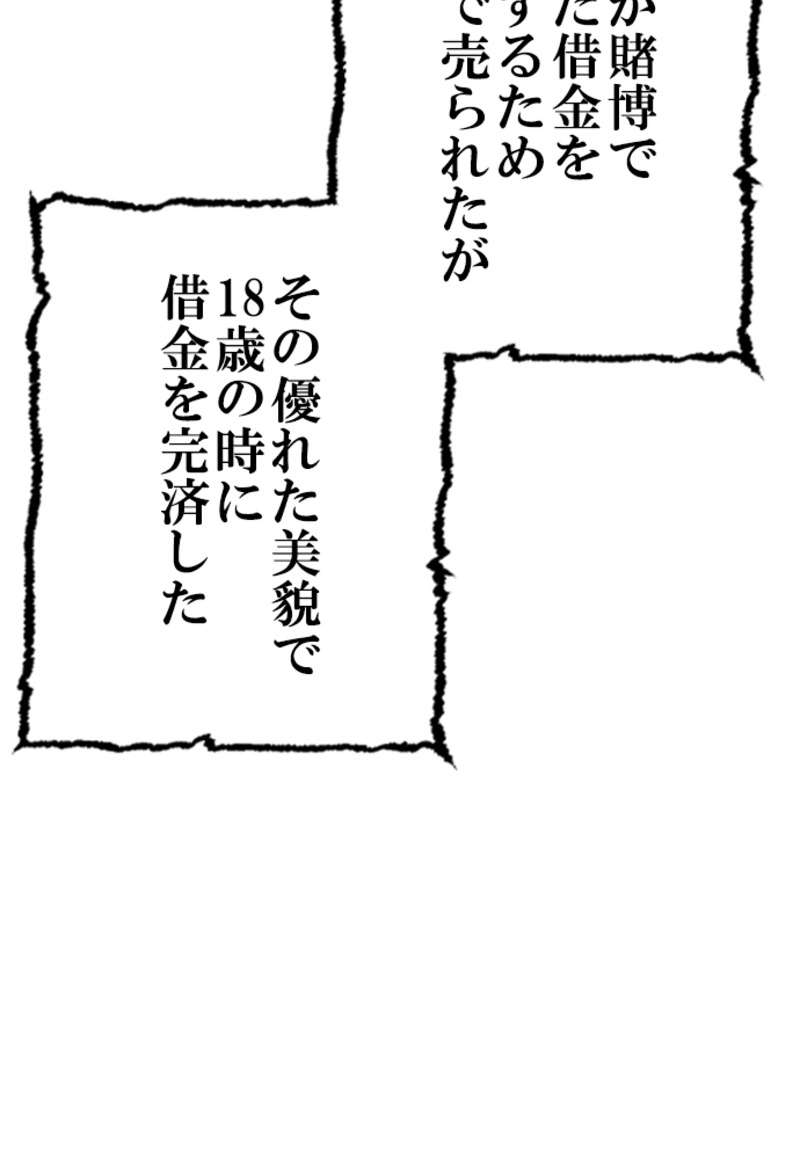 が賭博で
た借金を
するため
で売られたが
その優れた美貌で
18歳の時に
借金を完済した